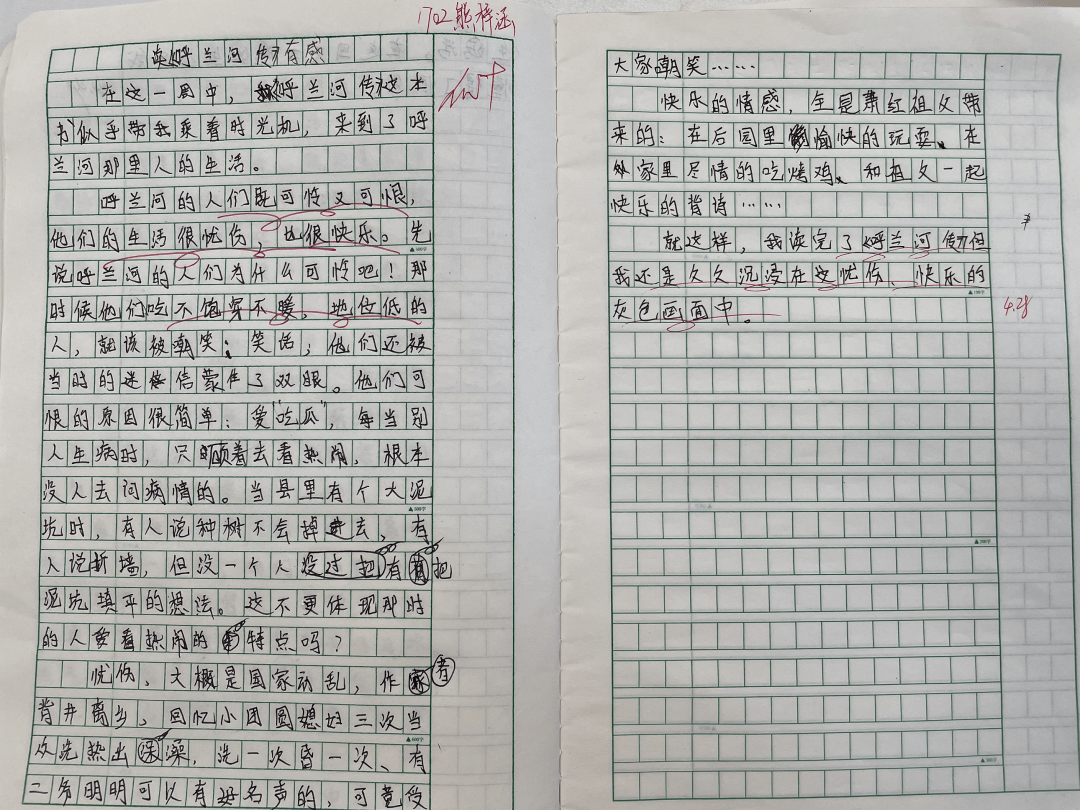 1702熊梓涵
读《呼兰河传》有感
在这一周中，《呼兰河传》这本
书似乎带我乘着时光机，来到了呼
兰河那里人的生活。
呼兰河的人们既可怜又可恨，
他们的生活很忧伤，也很快乐。先
说呼兰河的人们为什么可怜吧！那
时候他们吃不饱穿不暖，地位低的
人，就该被嘲笑；笑话；他们还被
当时的迷信蒙住了双眼。他们可
恨的原因很简单：爱“吃瓜”，每当别
人生病时，只顾着去看热闹，根本
没人去问病情的。当县里有个大泥
坑时，有人说种树不会掉进去，有
人说拆墙，但没一个人没过把有把
泥坑填平的想法。这不更体现那时
的人爱看热闹的特点吗？
忧伤、大概是国家动乱，作者
背井离乡，回忆小团圆媳妇三次当
众洗热出澡，洗一次昏一次、有
二伯明明可以有好名声的，可竟受
大家嘲笑……
快乐的情感，全是萧红祖父带
来的：在后园里愉快的玩耍、在
家里尽情的吃烤鸡、和祖父一起
快乐的背诗……
就这样，我读完了《呼兰河传》但
我还是久久沉浸在这忧伤、快乐的
灰色画面中。
4.28